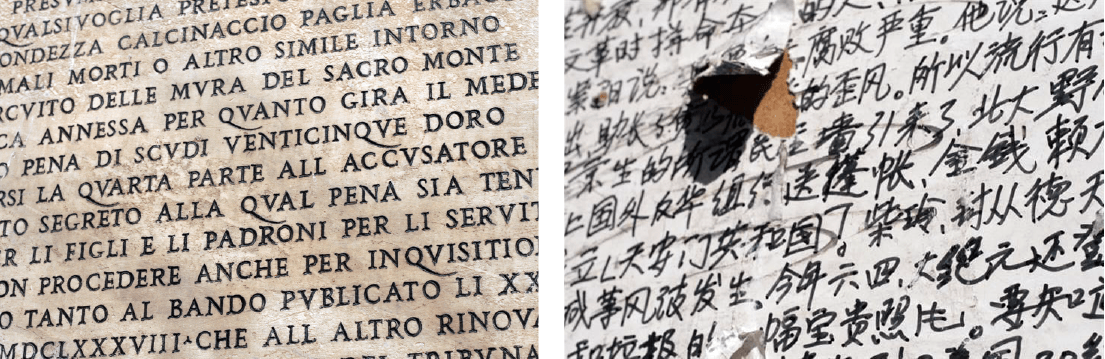 PRESV
QVALSIVOGLIA PRETES
ONDEZZA CALCINACCIO PAGLIA ERBAC
MALI MORTI O ALTRO SIMILE INTORNO
RCVITO DELLE MVRA DEL SACRO MONTE
CA ANNESSA PER QVANTO GIRA IL MEDE
O PENA DI SCVDI VENTICINQVE DORO
RSI LA QVARTA PARTE ALL ACCVSATORE
TO SEGRETO ALLA QVAL PENA SIA TEN
ER LI FIGLI E LI PADRONI PER LI SERVIT
ON PROCEDERE ANCHE PER INQVISITIO
O TANTO AL BANDO PVBLICATO LI XX
MDCLXXXVIII·CHE ALL ALTRO RINOVA
DEL TRIBVNA
文革时拼命
腐败严重。他说:这
的歪风。所以流行有
生的所谓民主墙引来了,北大野
上国外反华组织送蓬帐,金钱赖
立《天安门共和国》。柴玲,封从德天
成等风波发生,今年六四,大绝元还登
幅宝贵照片。要知